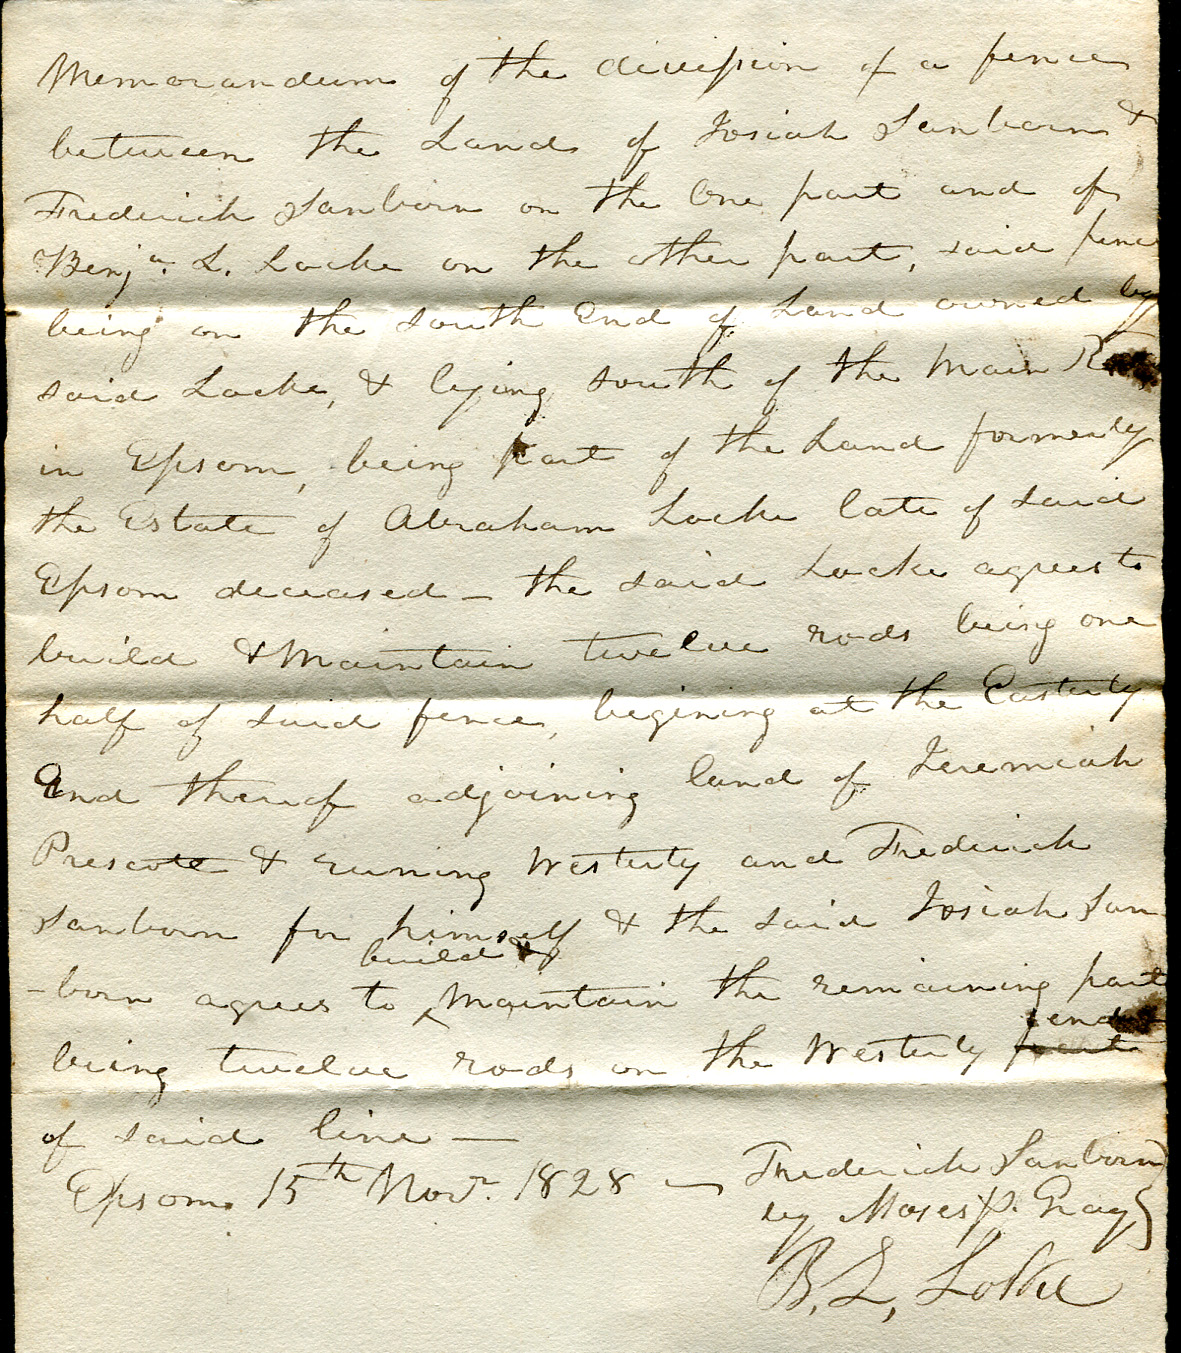 Memorandum of the division of a fence
between the Land of Josiah Sanborn &
Frederick Sanborn on the One part and of
Benjn. L. Locke on the other part, said fence
being on the South End of Land owned by
said Locke, & lying south of the Main
in Epsom, being part of the Land formerly
the Estate of Abraham Locke late of said
Epsom deceased — the said Locke agrees to
build & Maintain twelve rods being one
half of said fence, begining at the Easterly
End thereof adjoining land of Jeremiah
Prescott & runing Westerly and Frederick
Sanborn for himself & the said Josiah San
build &
-born agrees to ^ Maintain the remaining part
end
being twelve rods on the Westerly part
of said line —
Epsom 15th Novr. 1828 — Frederick Sanborn
by Moses P. Gray
B. L. Locke